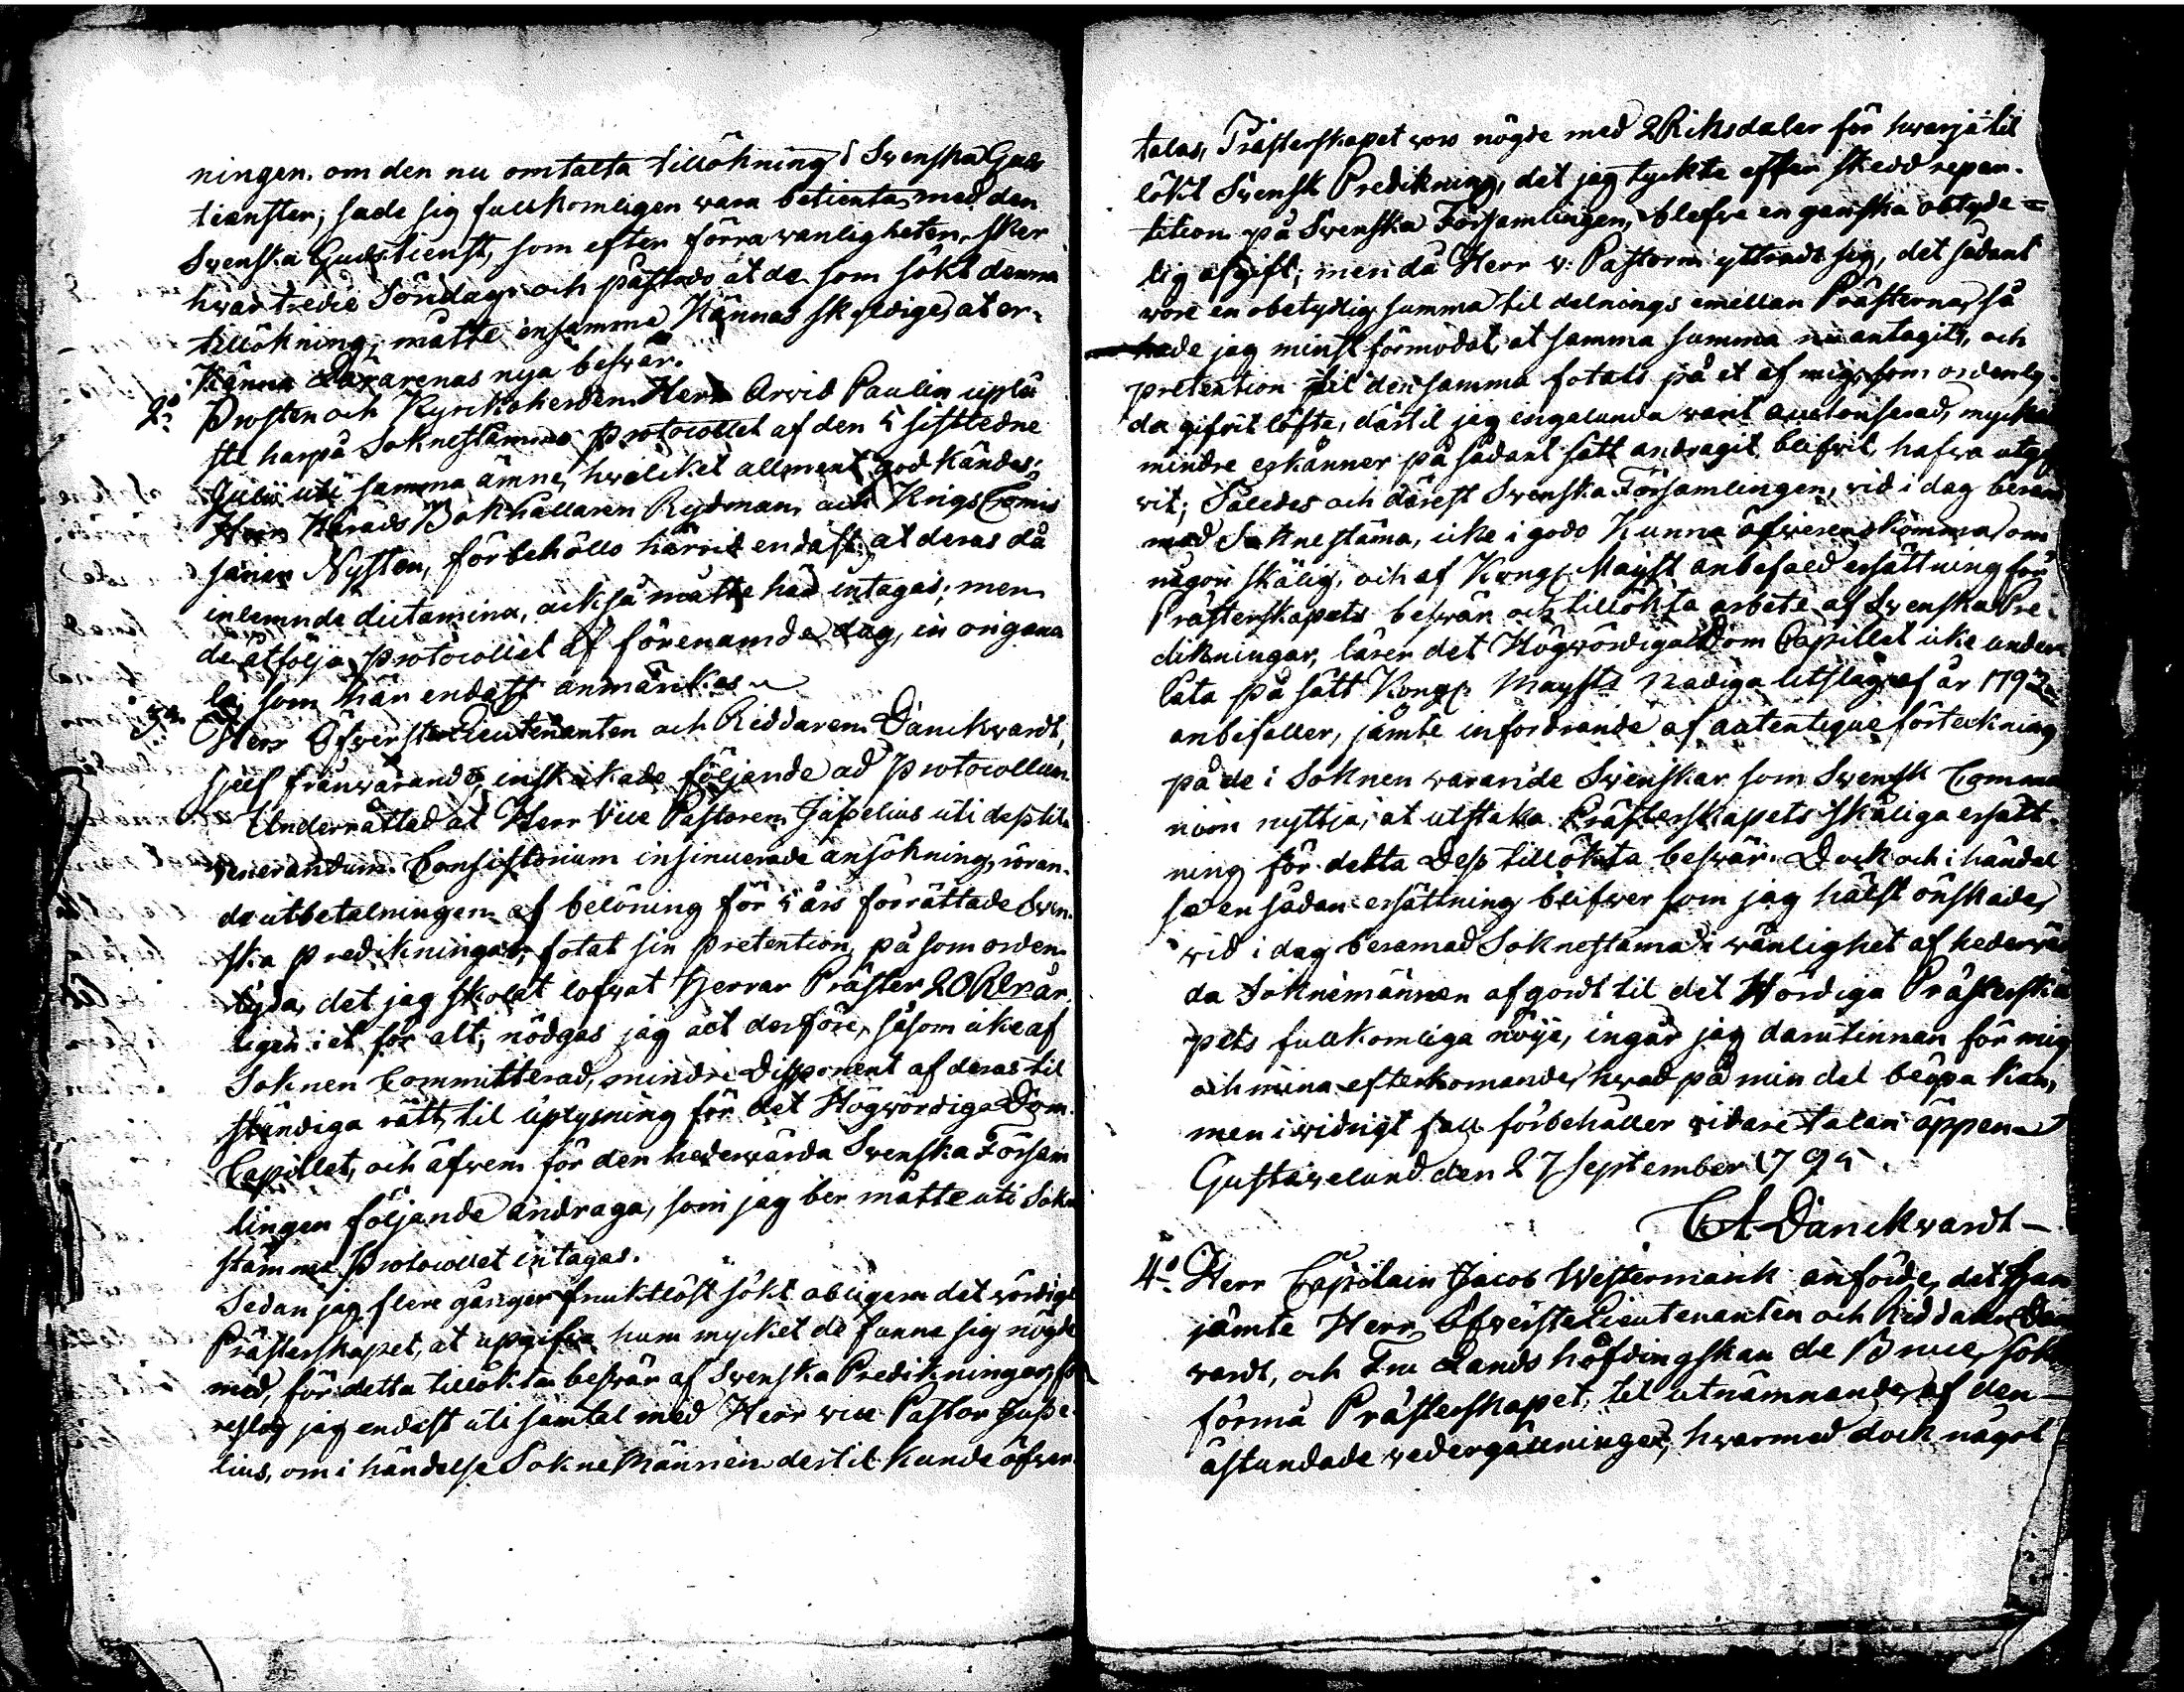 ningen om den nu omtalta tillökning i Svenska Guds
tienster, sade sig fullkomligen vara betienta med den
Svenska Gudstienst, som efter förra vanligheten sker
hvar tredie Söndag och påstods at de som sökt denna
tillökning, måtte ensamme kännas skyldige at er-
känna Lärarenas nya besvär.
2o Prosten och Kyrckoherden Herr Arvid Paulin uplä
ste harpå Soknestämmo Protocollet af den 5 sistledne
Julii uti samma ämne, hvilcket allment god kändes;
Herr Härads Bokhållaren Rydman, och Krigs Comis
sarien Nysten, förbehöllo härvid endast at deras då
inlemnde dictamina, ocksså måtte här intagas; men
de åtfölja Protocollet af förenamnde dag, in origina
li, som här endast anmärkes
3o Herr Öfverste Lieutenanten och Riddaren Danckvardt,
sjelf frånvarande, inskickade följande ad Protocollum.
Underrättad at Herr Vice Pastoren Japelius uti des til
Venerandum Consistorium insinuerade ansökning, röran-
de utbetalningen af belöning för 5 års förrättade Sven-
ska Predikningar, fotat sin pretention, på som orden
lyda, det jag skolat lofvat Herrar Präster 20 Rdr år
ligen i et för alt, nödgas jag äct derföre, såsom icke af
Soknen Committerad, mindre Disponent af deras til
ständiga rätt, til uplysning för det Högvördiga Dom-
Capitlet, och äfven för den hedervärda Svenska Försam
lingen följande andraga, som jag ber måtte uti Sokn
stämmo Protocollet intagas.
Sedan jag flere gånger fruktlöst sökt obligera det vördige
Prästerskapet, at upgifva huru mycket de funne sig nögde
med, för detta tillökta besvär af Svenska Predikningar, fö
reslog jag endast uti samtal med Herr vice Pastor Jape-
lius, om i händelse Sokne Männen dertil kunde öfver
talas, Prästerskapet vore nögde med 2 Riksdaler för hvarje til
lökt Svensk Predikning, det jag tyckte efter skedd repar-
tition på Svenska Församlingen, blefve en ganska obetyde-
lig afgift; men då Herr v. Pastorn yttrade sig, det sådant
vore en obetydlig summa til delnings emellan Prästerna, så
hade jag minst förmodat, at samma summa nu antagits, och
pretention til densamma fotats på et af mig, som orden ly
da gifvit löfte, därtil jag ingalunda varit auctoriserad, mycket
mindre erkänner på sådant sätt andragit blifvit, hafva utgif
vit; Således och därest Svenska Församlingen, vid i dag beram
mad Soknestäma, icke i godo kunna öfverenskomma, om
någon skälig, och af Kongl. Mayst. anbefald ersättning för
Prästerskapets besvär och tillökta arbete af Svenska Pre-
dikningar, lärer det Högvördiga Dom Capitlet icke under
låta på sätt Kongl. Maysts Nådiga Utslag af år 1792
anbefaller, jämte infordrande af autentique förteckning
på de i Soknen varande Svenskar som Svensk Commu
nion nyttja, at utstaka Prästerskapets skäliga ersätt-
ning för detta Dess tillökta besvär. Dock och i händel
se en sådan ersättning blifver som jag hälst önskade,
vid i dag beramad Soknestäma i vänlighet af hedervär
da Soknemännen afgordt til det Vördiga Prästerska
pets fullkomliga nöije, ingår jag darutinnan för mig
och mina efterkomande, hvad på min del belöpa kan,
men i vidrigt fall förbehåller vidare talan öppen
Gustavelund den 27 September 1795.
CA Danckvardt
4o Herr Capitain Jacob Westermarck anförde, det Han
jämte Herr Öfverste Lieutenanten och Riddaren Danck
vardt, och Fru Landshöfdingskan de Bruce, sökt
förmå Prästerskapet, til utnämnande af den
åstundade vedergällningen, hvarmed dock något